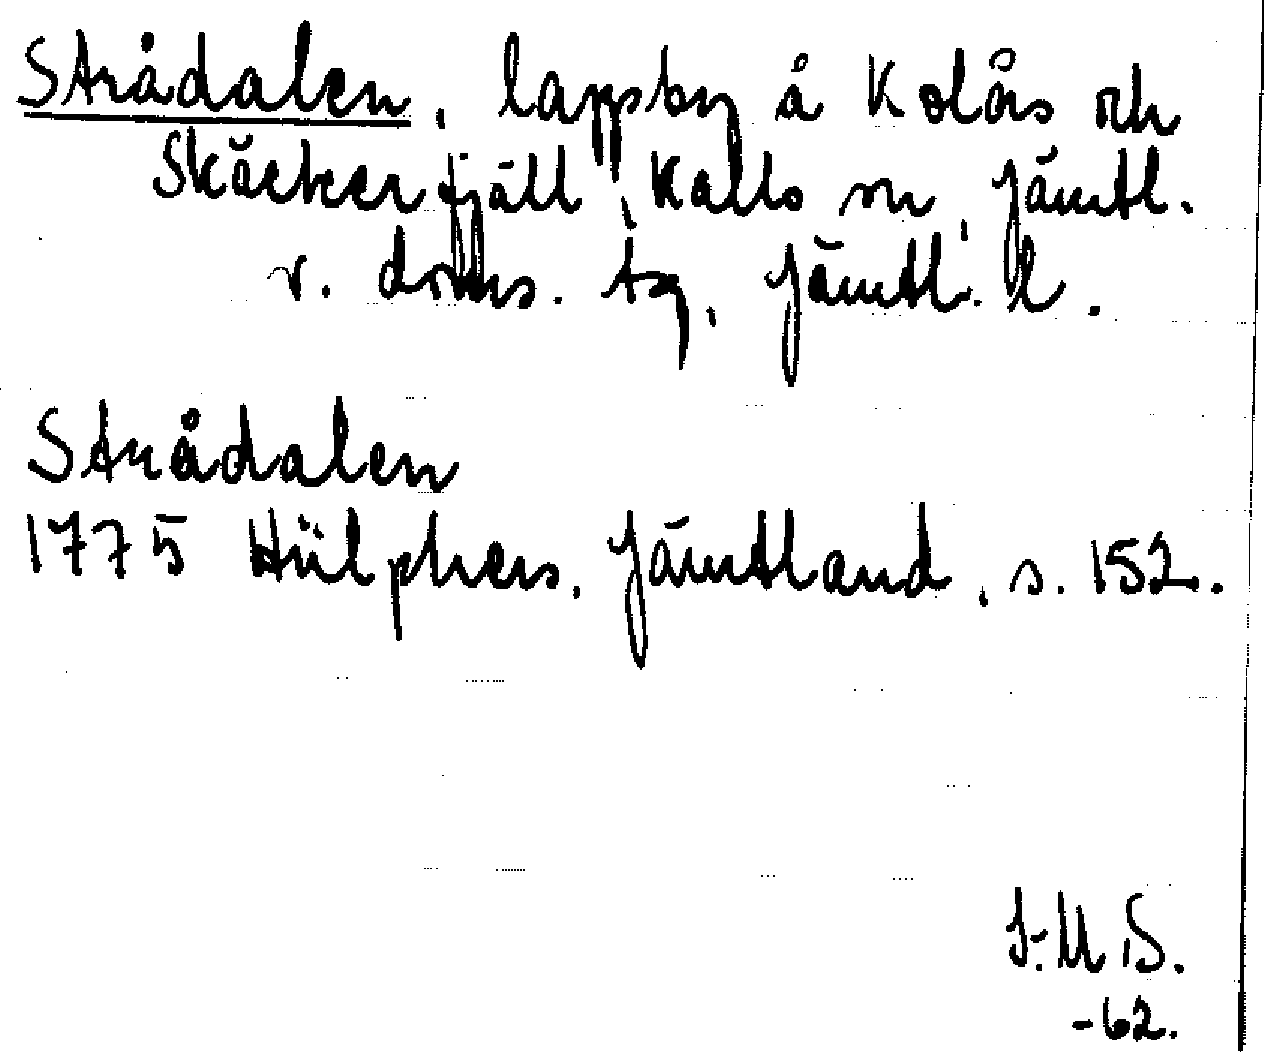 Strådalen, lappby å Kolås och
Skäckerfjäll, Kalls sn, Jämtl.
v. doms. tg, Jämtl. l.
Strådalen
1775 Hülphers. Jämtland, s. 152.
J.M.S.
-62.